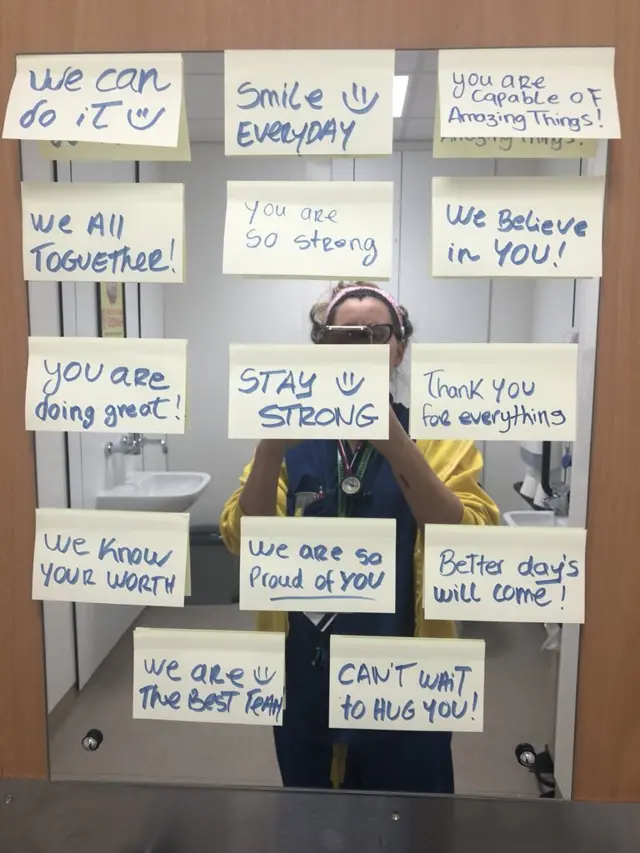 we can
do it
Smile
EVERYDAY
you are
capable of
Amazing Things!
Amazing Things!
We All
TOGUETHER!
you are
so strong
We Believe
in YOU!
you are
doing great!
STAY
STRONG
Thank you
for everything
We know
YOUR WORTH
We are so
Proud of YOU
Better day's
will come!
we are
The BEST TEAM
CAN'T WAIT
to HUG YOU!